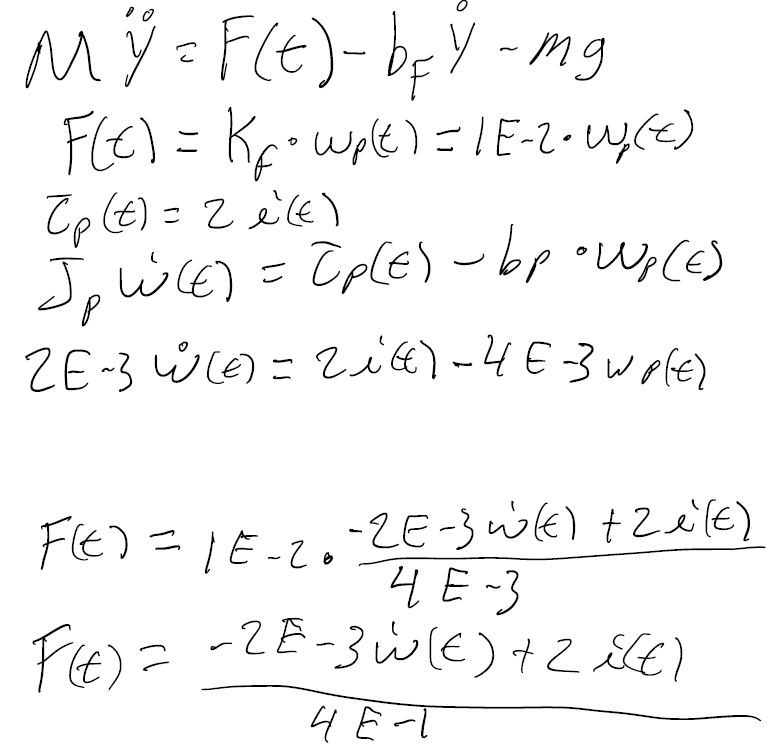 Mÿ = F(t) - b_F ẏ - mg
F(t) = K_f · w_p(t) = 1E-2 · w_p(t)
τ_p(t) = 2 i(t)
J_p ẇ(t) = τ_p(t) - bp · w_p(t)
2E-3 ẇ(t) = 2i(t) - 4E-3 w_p(t)
F(t) = 1E-2 · (-2E-3 ẇ(t) + 2i(t)) / (4E-3)
F(t) = (-2E-3 ẇ(t) + 2 i(t)) / (4E-1)